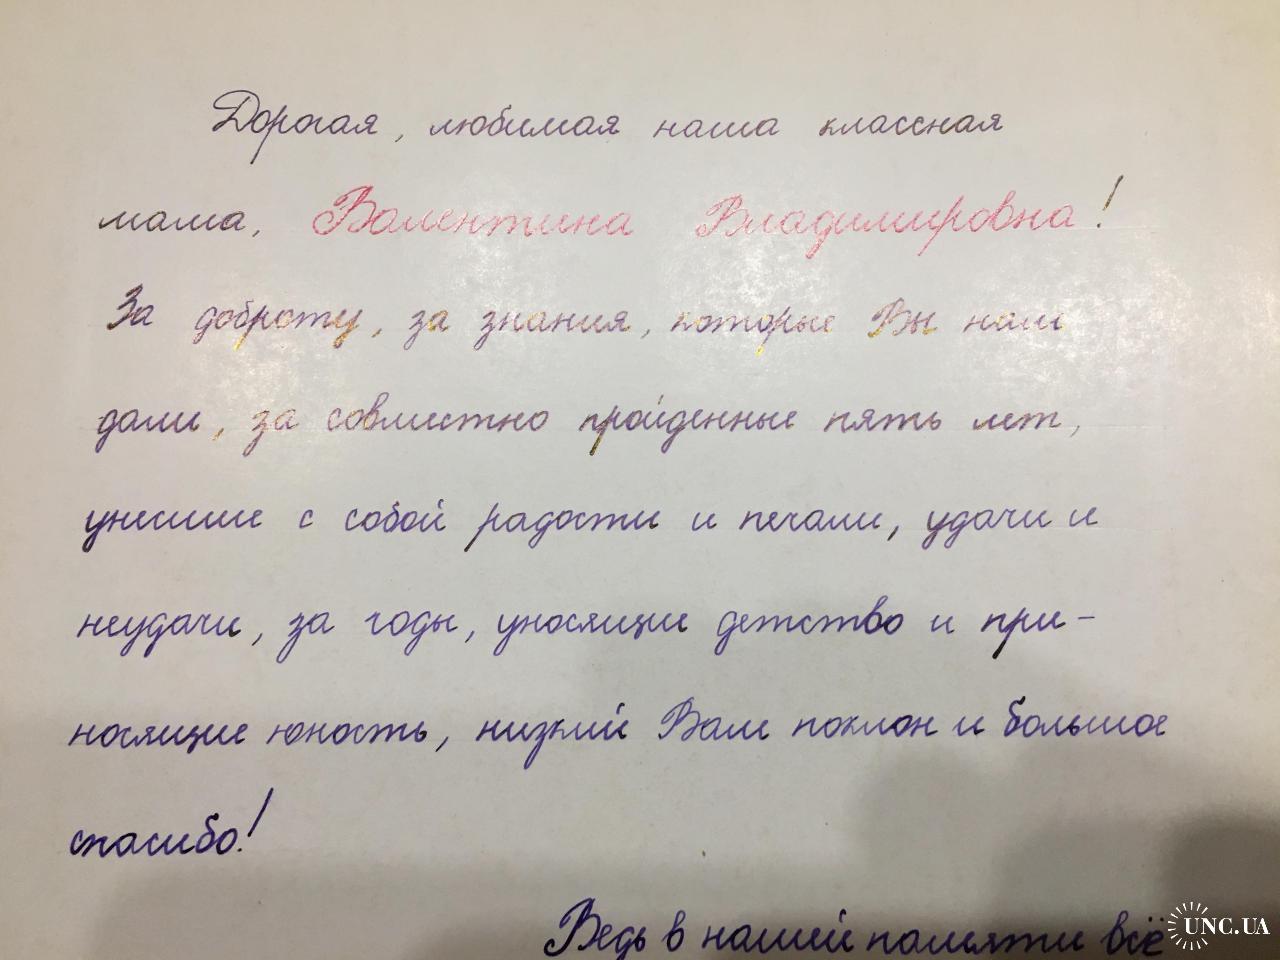 Дорогая, любимая наша классная
мама, Валентина Владимировна!
За доброту, за знания, которые Вы нам
дали, за совместно пройденные пять лет,
унесшие с собой радости и печали, удачи и
неудачи, за годы, уносящие детство и при-
носящие юность, низкий Вам поклон и большое
спасибо!
Ведь в нашей памяти всё
UNC.UA